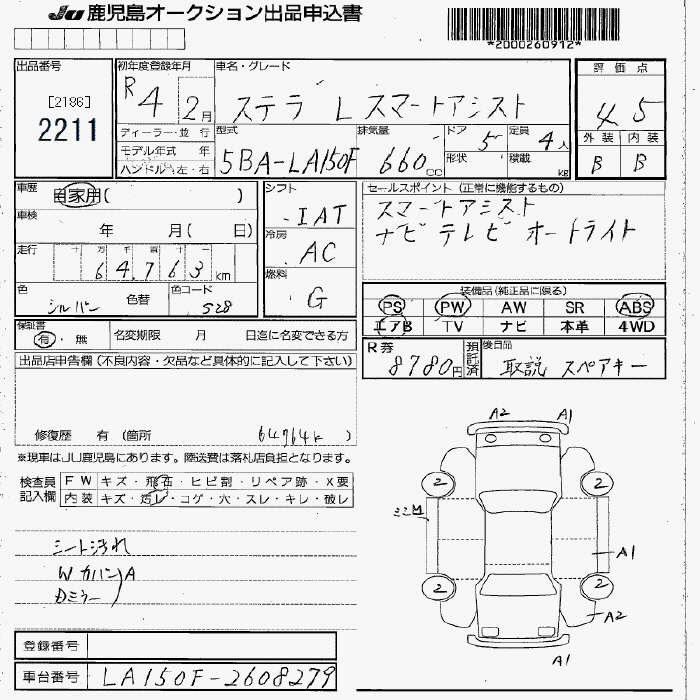 JU 鹿児島オークション出品申込書
*2000260912*
出品番号
[2186]
2211
初年度登録年月
R 4 2月
車名・グレード
ステラ L スマートアシスト
評価点
4.5
ディーラー・並 行
モデル年式 年
ハンドル 左・右
型式
5BA-LA150F
排気量
660cc
ドア 5
形状
定員 4人
積載 kg
外装 内装
B B
車歴
自家用( )
車検
年 月( 日)
走行
十万千百十
64,763 km
色
シルバー
色替
色コード
S28
シフト
IAT
冷房
AC
燃料
G
セールスポイント(正常に機能するもの)
スマートアシスト
ナビ テレビ オートライト
装備品(純正品に限る)
PS PW AW SR ABS
エアB TV ナビ 本革 4WD
保証書
有・無
名変期限 月 日迄に名変できる方
R券
8780円
預託済
後日品
取説 スペアキー
出品店申告欄(不良内容・欠品など具体的に記入して下さい)
修復歴 有(箇所 64764k )
※現車はJU鹿児島にあります。陸送費は落札店負担となります。
検査員記入欄
FW キズ・飛石・ヒビ割・リペア跡・X要
内装 キズ・汚レ・コゲ・穴・スレ・キレ・破レ
シート汚れ
Wカバー
Dミラー
A
A2 A1
2 2
ミニM
A1
2 2
A2
A1
登録番号
車台番号 LA150F-2608279